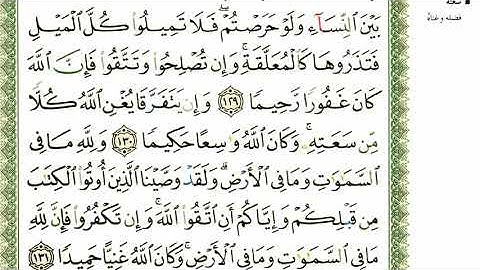 سعته
فضله وغناه
بَيْنَ ٱلنِّسَآءِ وَلَوْ حَرَصْتُمْ ۖ فَلَا تَمِيلُوا۟ كُلَّ ٱلْمَيْلِ
فَتَذَرُوهَا كَٱلْمُعَلَّقَةِ ۚ وَإِن تُصْلِحُوا۟ وَتَتَّقُوا۟ فَإِنَّ ٱللَّهَ
كَانَ غَفُورًا رَّحِيمًا ١٢٩ وَإِن يَتَفَرَّقَا يُغْنِ ٱللَّهُ كُلًّا
مِّن سَعَتِهِۦ ۚ وَكَانَ ٱللَّهُ وَٰسِعًا حَكِيمًا ١٣٠ وَلِلَّهِ مَا فِى
ٱلسَّمَٰوَٰتِ وَمَا فِى ٱلْأَرْضِ ۗ وَلَقَدْ وَصَّيْنَا ٱلَّذِينَ أُوتُوا۟ ٱلْكِتَٰبَ
مِن قَبْلِكُمْ وَإِيَّاكُمْ أَنِ ٱتَّقُوا۟ ٱللَّهَ ۚ وَإِن تَكْفُرُوا۟ فَإِنَّ لِلَّهِ
مَا فِى ٱلسَّمَٰوَٰتِ وَمَا فِى ٱلْأَرْضِ ۚ وَكَانَ ٱللَّهُ غَنِيًّا حَمِيدًا ١٣١